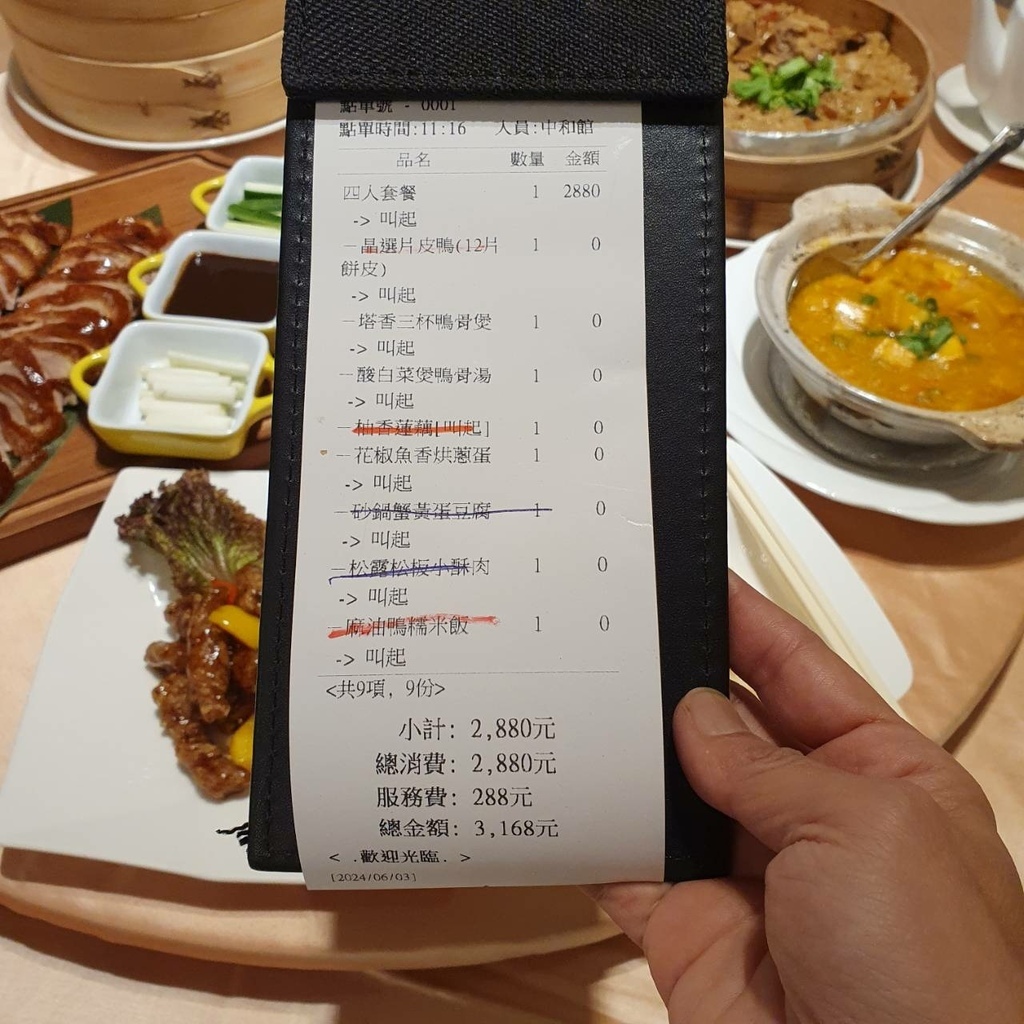 點單號 - 0001
點單時間:11:16 人員:中和館
品名 數量 金額
四人套餐 1 2880
-> 叫起
-晶選片皮鴨(12片 1 0
餅皮)
-> 叫起
-塔香三杯鴨骨煲 1 0
-> 叫起
-酸白菜煲鴨骨湯 1 0
-> 叫起
-柚香蓮藕[叫起] 1 0
-花椒魚香烘蔥蛋 1 0
-> 叫起
-砂鍋蟹黃蛋豆腐 1 0
-> 叫起
-松露松板小酥肉 1 0
-> 叫起
-麻油鴨糯米飯 1 0
-> 叫起
<共9項, 9份>
小計: 2,880元
總消費: 2,880元
服務費: 288元
總金額: 3,168元
< .歡迎光臨. >
[2024/06/03]